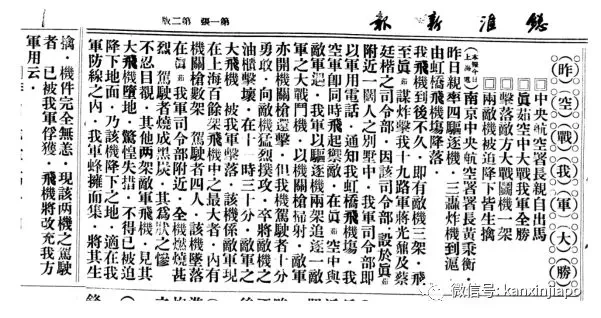 淮新報
第一張 第二版
(昨)(空)(戰)(我)(軍)(大)(勝)
□中央航空署長親自出馬
□眞茹空中大戰我軍全勝
□擊落敵方大戰鬭機一架
□兩敵機被迫降下皆生擒
上海電)南京中央航空署署長黃秉衡，
昨日親率四驅逐機，三轟炸機到滬，
由虹橋飛機塲降落，
我飛機到後不久，即有敵機三架，飛
至眞茹謀炸擊我十九路軍蔣光鼐及蔡
廷楷之司令部，因該司令部，設於眞茹
附近一闊人之別墅中，我軍司令部即
以軍用電話，通知我虹橋飛機塲，我
空軍即同時飛起禦敵，在眞茹空中與
敵軍遇，我軍以驅逐機兩架追逐一敵
軍之大戰鬥機，以機關槍掃射，敵軍
亦開機關槍還擊，但我機駕駛者十分
勇敢，向敵機猛烈撲攻，卒將敵機之
油櫃擊壞，在十一時三十分，敵軍之
大飛機，被我軍擊落，該機係敵軍現
在上海百餘架飛機中之最大者，內有
機關槍數架，駕駛者四人，該機墜落
在眞茹我軍司令部附近，全機燃燒甚
烈，駕駛者燒成黑炭，其爲狀之慘
不忍目覩，其他兩架敵軍飛機，見其
大飛機墮地，驚惶失措，不得已被迫
降下地面，乃該機降下之地，適在我
軍防線之內，我軍蜂擁而集，將其生
擒，機件完全無恙，現該两機之駕駛
者，已被我軍俘獲，飛機將改充我方
軍用云。
微信号: kanxinjiapo